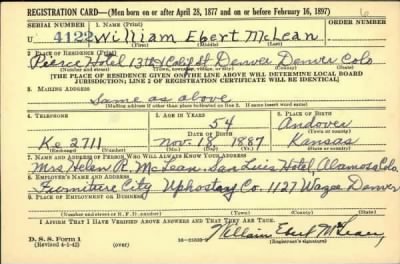 REGISTRATION CARD—(Men born on or after April 28, 1877 and on or before February 16, 1897)
6
SERIAL NUMBER 1. NAME (Print)
U 4122 William Ebert McLean
(First) (Middle) (Last)
2. PLACE OF RESIDENCE (Print)
Pierce Hotel 13th & Calif St. Denver Denver Colo
(Number and street) (Town, township, village, or city) (County) (State)
[THE PLACE OF RESIDENCE GIVEN ON THE LINE ABOVE WILL DETERMINE LOCAL BOARD
JURISDICTION; LINE 2 OF REGISTRATION CERTIFICATE WILL BE IDENTICAL]
3. MAILING ADDRESS
Same as above
(Mailing address if other than place indicated on line 2. If same insert word same)
4. TELEPHONE 5. AGE IN YEARS 6. PLACE OF BIRTH
54 Andover
DATE OF BIRTH (Town or county)
Ke 2711 Nov. 18, 1887 Kansas
(Exchange) (Number) (Mo.) (Day) (Yr.) (State or country)
7. NAME AND ADDRESS OF PERSON WHO WILL ALWAYS KNOW YOUR ADDRESS
Mrs. Helen R. McLean. San Luis Hotel Alamosa Colo.
8. EMPLOYER'S NAME AND ADDRESS
Furniture City Upholstary Co. 1127 Wazee Denver
9. PLACE OF EMPLOYMENT OR BUSINESS
(Number and street or R. F. D. number) (Town) (County) (State)
I AFFIRM THAT I HAVE VERIFIED ABOVE ANSWERS AND THAT THEY ARE TRUE.
D. S. S. Form 1
(Revised 4-1-42) William Ebert McLean
(Registrant's signature)